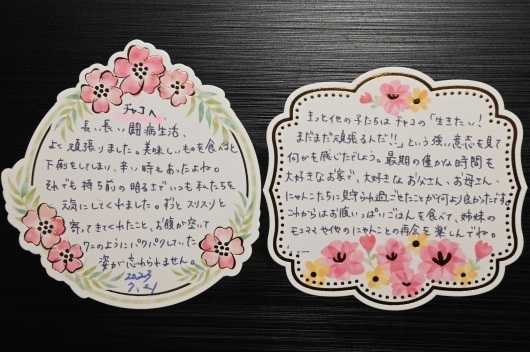 チャコへ
長い長い闘病生活、
よく頑張りました。美味しいものを食べると
下痢をしてしまい、辛い時もあったよね。
それでも持ち前の明るさでいつも私たちを
元気にしてくれました。ずっとスリスリと
寄ってきてくれたこと、お腹が空いて
ワニのようにパクパクしていた
姿が忘れられません。
2023
7.21
きっと他の子たちはチャコの「生きたい!
まだまだ頑張るんだ!!」という強い意志を見て
何かを感じたでしょう。最期の僅かな時間も
大好きなお家で、大好きなお父さん、お母さん、
にゃんこたちに見守られ過ごせたことが何より良かったです。
これからはお腹いっぱいごはんを食べて、姉妹の
モコママやセイヤのにゃんことの再会を楽しんでね。